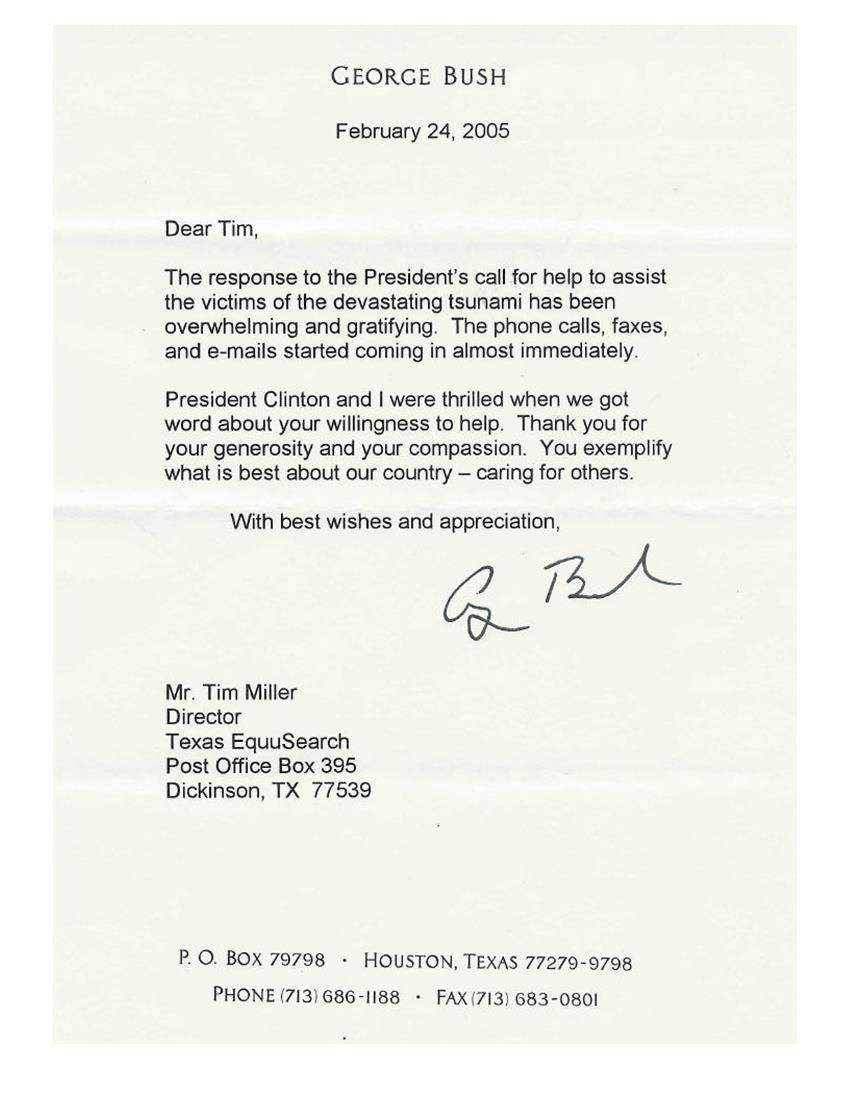 GEORGE BUSH
February 24, 2005
Dear Tim,
The response to the President's call for help to assist
the victims of the devastating tsunami has been
overwhelming and gratifying.  The phone calls, faxes,
and e-mails started coming in almost immediately.
President Clinton and I were thrilled when we got
word about your willingness to help.  Thank you for
your generosity and your compassion.  You exemplify
what is best about our country – caring for others.
With best wishes and appreciation,
G Bush
Mr. Tim Miller
Director
Texas EquuSearch
Post Office Box 395
Dickinson, TX  77539
P. O. BOX 79798 · HOUSTON, TEXAS 77279-9798
PHONE (713) 686-1188 · FAX (713) 683-0801